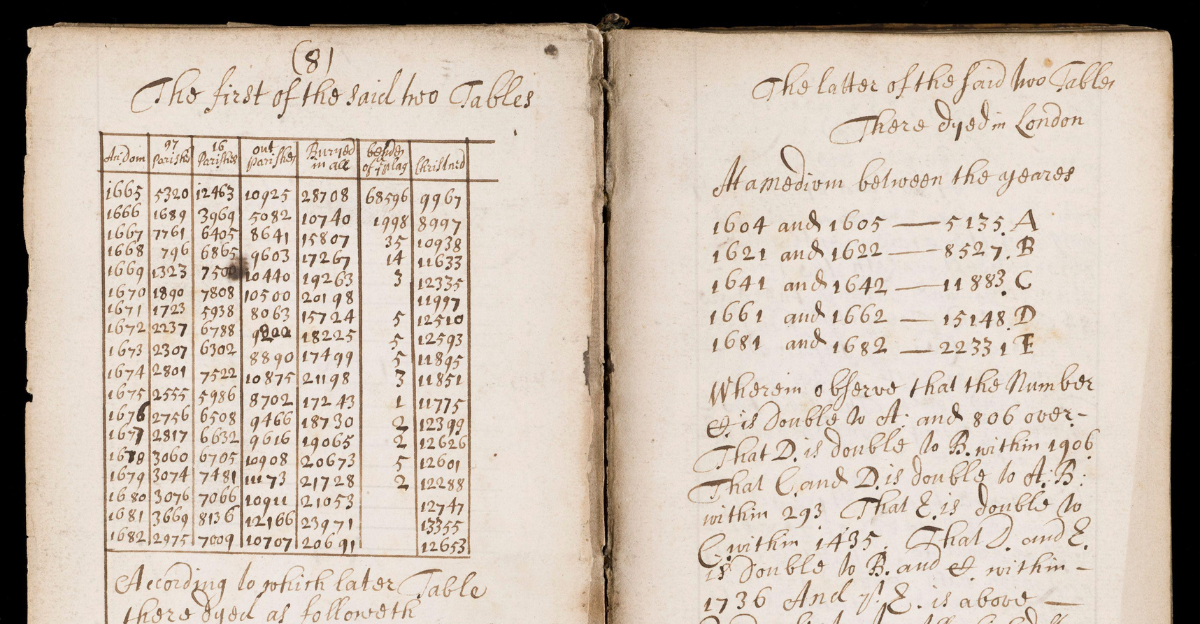 (8)
The first of the said two Tables
An:Dom 97 Parishes 16 Parishes out parishes Buryed in all besydes of ye plag Christned
1665 5320 12463 10925 28708 68596 9967
1666 1689 3969 5082 10740 1998 8997
1667 7761 6405 8641 15807 35 10938
1668 796 6865 9603 17267 14 11633
1669 1323 7500 10440 19263 3 12335
1670 1890 7808 10500 20198 11997
1671 1723 5938 8063 15724 5 12510
1672 2237 6788 9200 18225 5 12593
1673 2307 6302 8890 17499 5 11895
1674 2801 7522 10875 21198 3 11851
1675 2555 5986 8702 17243 1 11775
1676 2756 6508 9466 18730 2 12399
1677 2817 6632 9616 19065 2 12626
1678 3060 6705 10908 20673 5 12601
1679 3074 7481 11173 21728 2 12288
1680 3076 7066 10911 21053 12747
1681 3669 8136 12166 23971 13355
1682 2975 7009 10707 20691 12653
According to which later Table
there dyed as followeth
The latter of the said two Tables
There dyed in London
At a medium between the yeares
1604 and 1605 — 5135. A
1621 and 1622 — 8527. B
1641 and 1642 — 11883. C
1661 and 1662 — 15148. D
1681 and 1682 — 22331 E
Wherein observe that the Number
C. is double to A. and 806 over-
That D. is double to B. within 1906
That C. and D. is double to A: B:
within 293 That E. is double to
C. within 1435. That D. and E.
is double to B. and C. within-
1736 And yt E. is above —